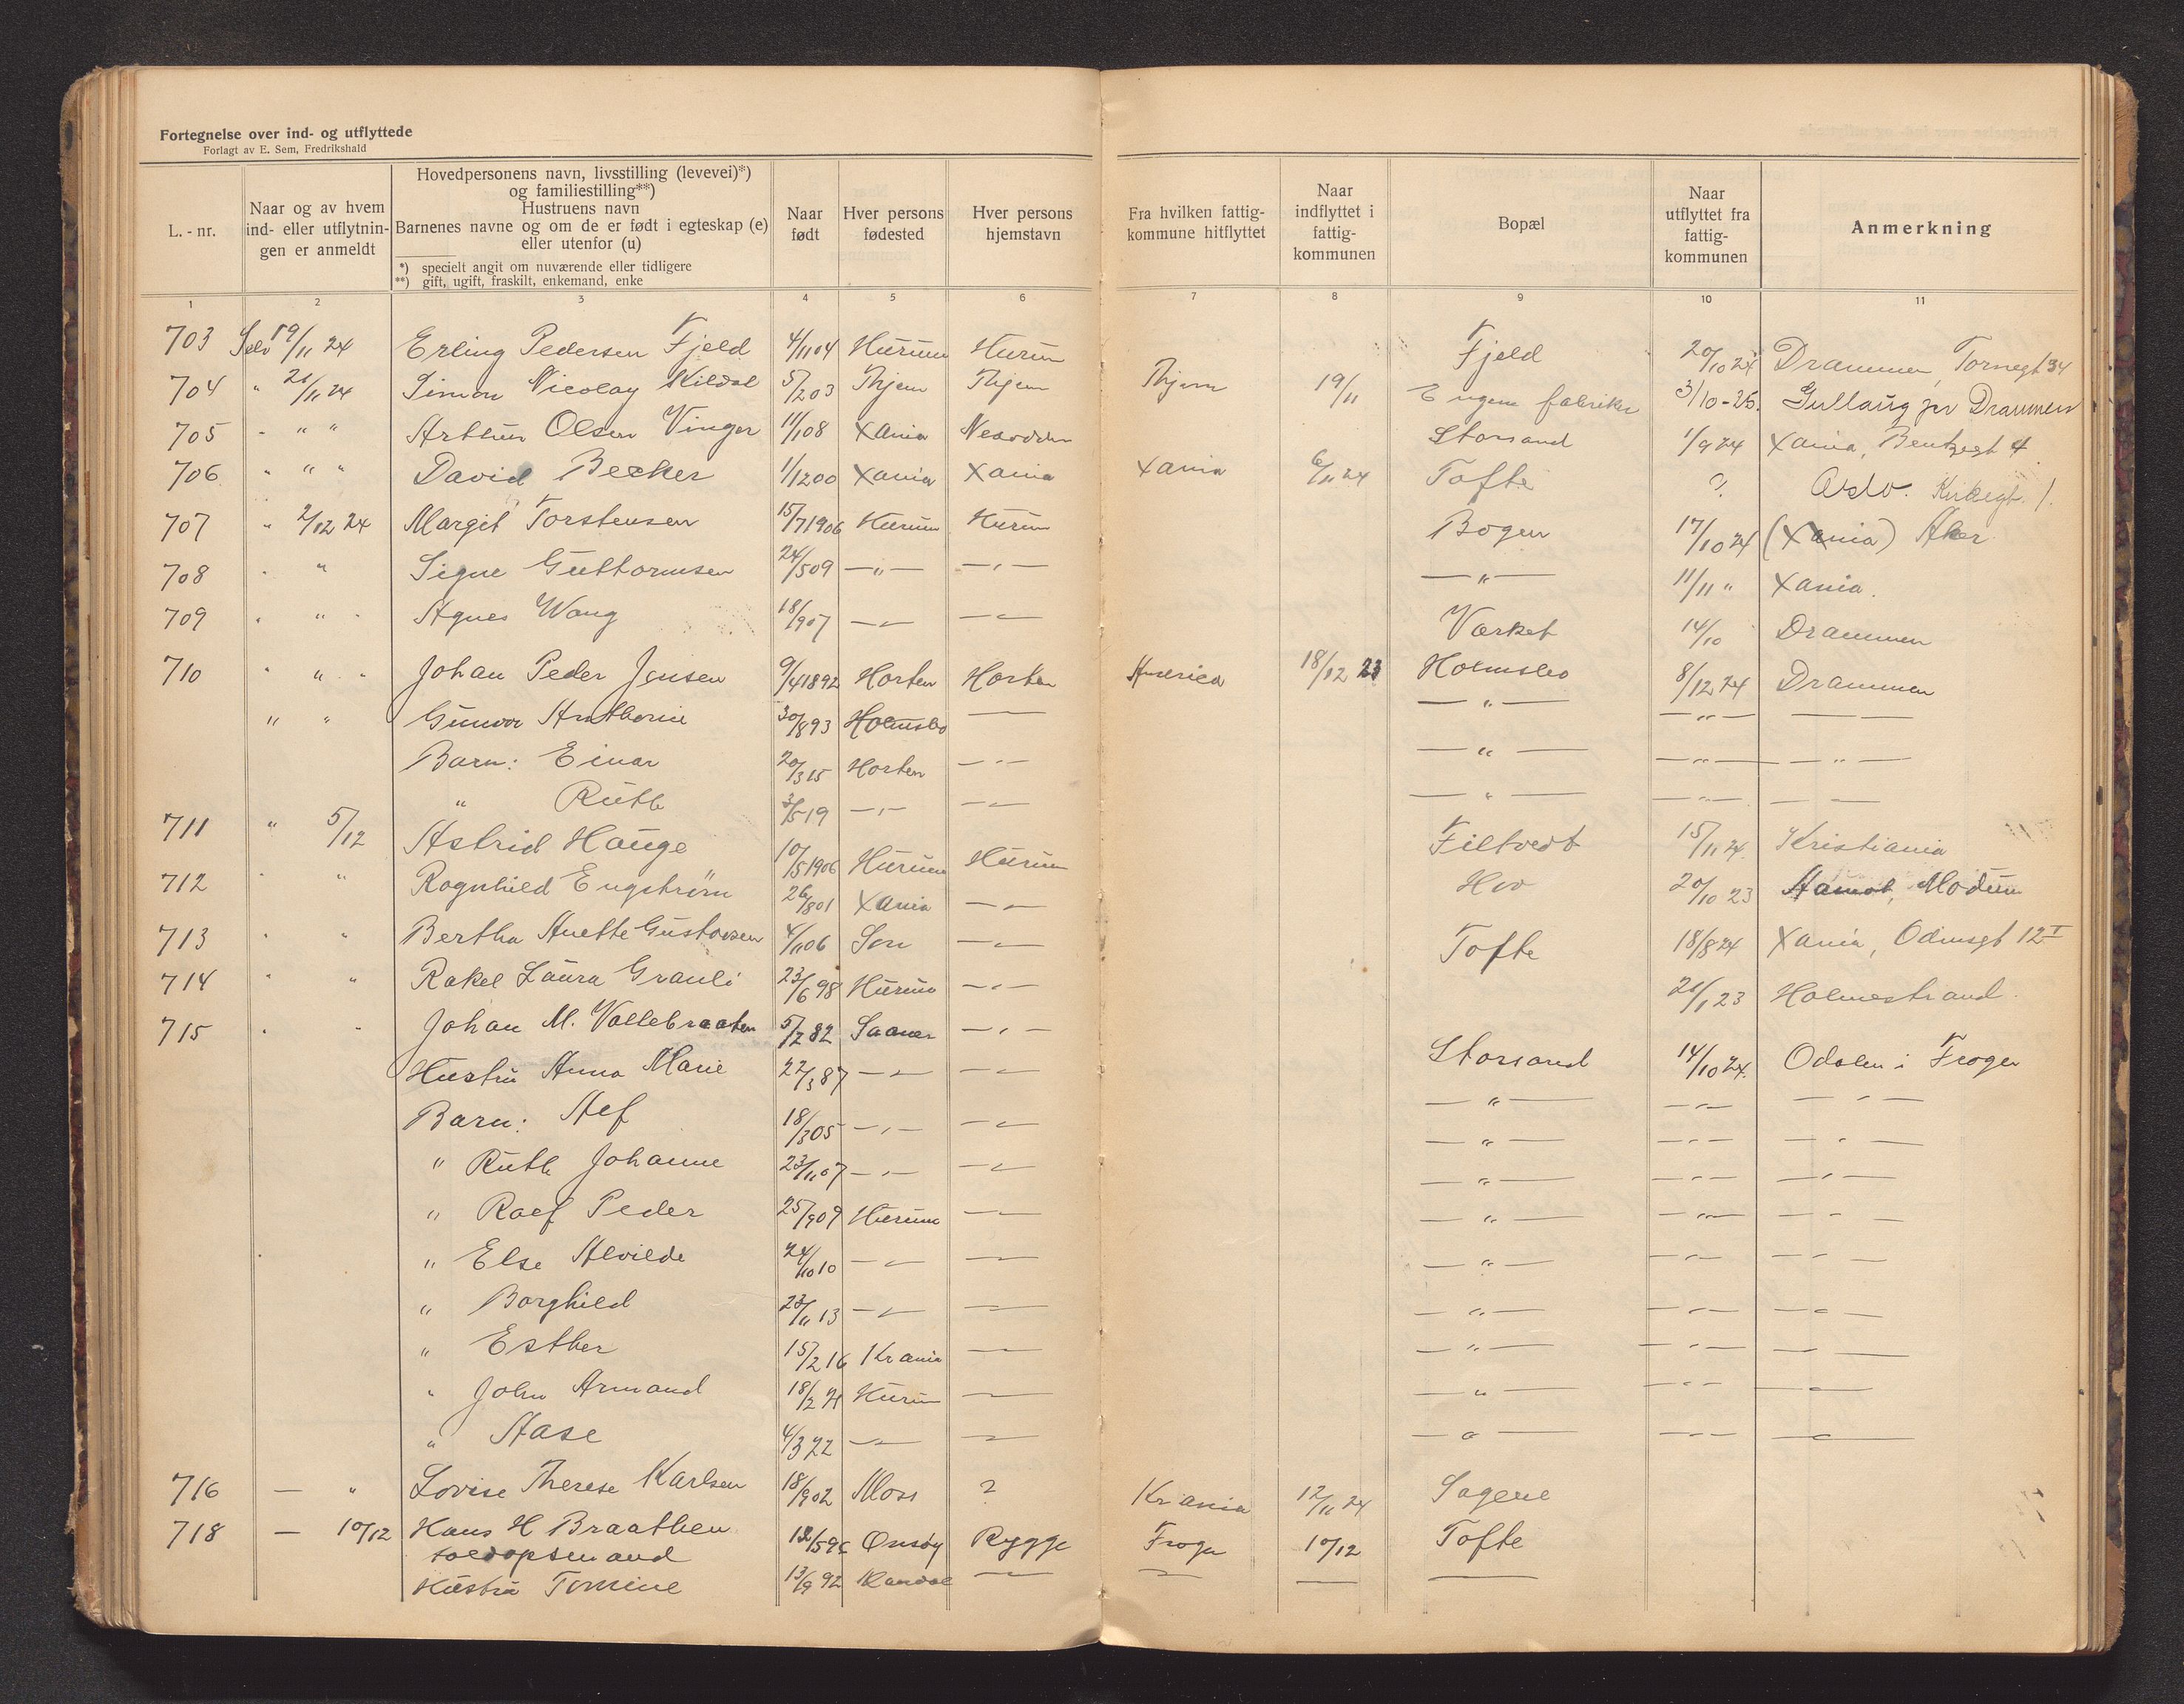 Fortegnelse over ind- og utflyttede
Forlagt av E. Sem, Fredrikshald
L.-nr.
Naar og av hvem ind- eller utflytningen er anmeldt
Hovedpersonens navn, livsstilling (levevei)*)
og familiestilling**)
Hustruens navn
Barnenes navne og om de er født i egteskap (e)
eller utenfor (u)
*) specielt angit om nuværende eller tidligere
**) gift, ugift, fraskilt, enkemand, enke
Naar født
Hver persons fødested
Hver persons hjemstavn
Fra hvilken fattigkommune hitflyttet
Naar indflyttet i fattigkommunen
Bopæl
Naar utflyttet fra fattigkommunen
Anmerkning
1 2 3 4 5 6 7 8 9 10 11
703 Selv 19/11 24 Erling Pedersen Fjeld 4/11 04 Hurum Hurum Fjeld 20/10 24 Drammen, Tornegt 34
704 " 21/11 24 Simon Nicolay Kildal 5/2 03 Thjem Thjem Thjem 19/11 Engene fabriker 3/10-25. Gullaug pr Drammen
705 - " " Arthur Olsen Vinger 11/1 08 Xania Nesodden Storsand 1/9 24 Xania, Bentzegt 4
706 " " " David Becker 1/12 00 Xania Xania Xania 6/11 24 Tofte ? Oslo. Kirkegt. 1.
707 " 2/12 24 Margit Torstensen 15/7 1906 Hurum Hurum Bogen 17/10 24 (Xania) Aker
708 " " Signe Guttormsen 24/5 09 —"— —"— —"— 11/11 " Xania.
709 " " " Agnes Wang 18/9 07 —"— —"— Verket 14/10 Drammen
710 " " " Johan Peder Jensen 9/4 1892 Horten Horten America 18/12 23 Holmsbo 8/12 24 Drammen
" " Gunvor Anthonie 30/8 93 Holmsbo — —"— —"— — —
Barn: Einar 20/3 15 Horten —"— —"— —"— —"—
" Ruth 3/5 19 —"— —"— —"— —"— — —
711 " 5/12 Astrid Hauge 10/5 1906 Hurum Hurum Filtvedt 15/11 24. Kristiania
712 " " Ragnhild Engstrøm 26/8 01 Xania —"— Hvo 20/10 23 Aamot, Modum
713 " " Bertha Anette Gustavsen 4/11 06 Son —"— Tofte 18/8 24 Xania, Odinsgt 12 I
714 " " Rakel Laura Granli 23/6 98 Hurum —"— 21/1 23 Holmestrand.
715 " " Johan M. Vollebraaten 5/7 82 Saaner —"— Storsand 14/10 24. Odalen i Frogn
Hustru Anna Marie 22/3 87 —"— —"— —"— —"— —"—
Barn: Alf 18/3 05 —"— —"— —"— —"— —"—
" Ruth Johanne 23/11 07 —"— —"— —"— —"— —"—
" Rolf Peder 25/9 09 Hurum — —"— —"— —"—
" Else Alvilde 24/10 10 —"— — —"— —"— —"—
" Borghild 23/11 13 —"— — —"— —"— —"—
" Esther 15/2 16 Krania — —"— —"— — —
" John Armand 18/2 21 Hurum — —"— —"— —"—
" Aase 4/3 22 — — —"— —"— —"—
716 — " Lovise Therese Karlsen 18/9 02 Moss ? Krania 12/11 24 Sagene
718 — 10/12 Hans H Braathen 12/5 95 Onsøy Rygge Frogn 10/12 Tofte
toldopsmand
Hustru Tomine 13/9 92 — — — —